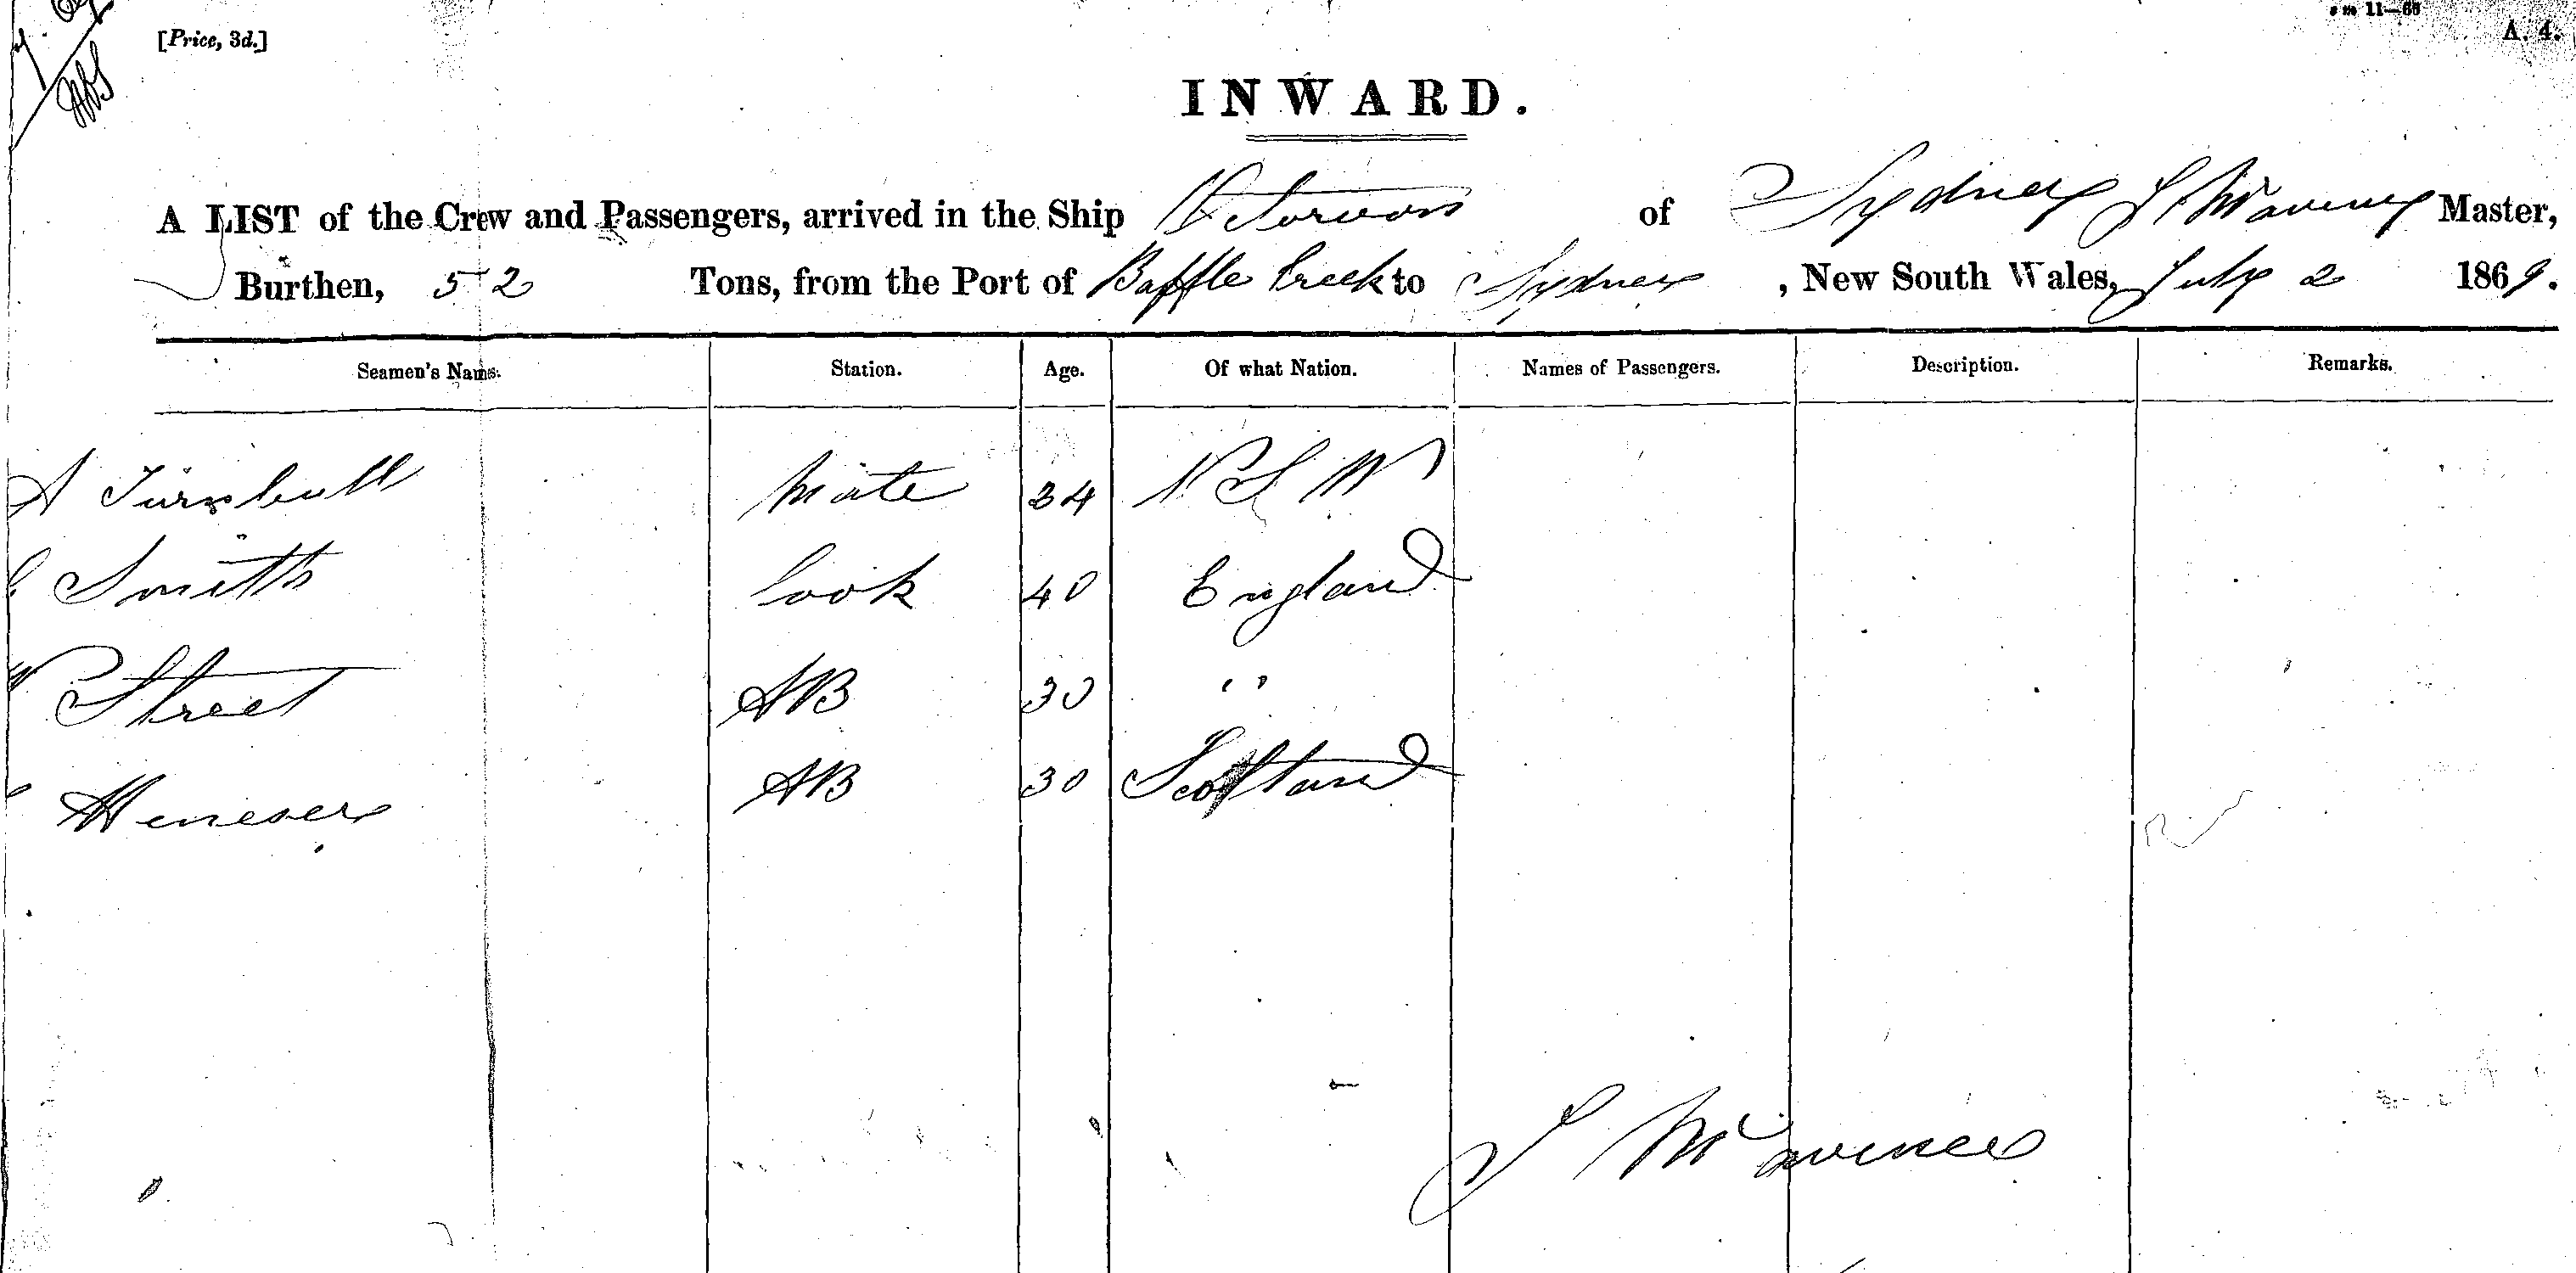 [Price, 3d.]
A. 4.
INWARD.
A LIST of the Crew and Passengers, arrived in the Ship of Sydney Master,
Burthen, 52 Tons, from the Port of Baffle Creek to Sydney, New South Wales, July 2 1869.
Seamen's Names. Station. Age. Of what Nation. Names of Passengers. Description. Remarks.
A Turnbull Mate 24 NSW
Smith Cook 40 England
Street AB 30 "
AB 30 Scotland